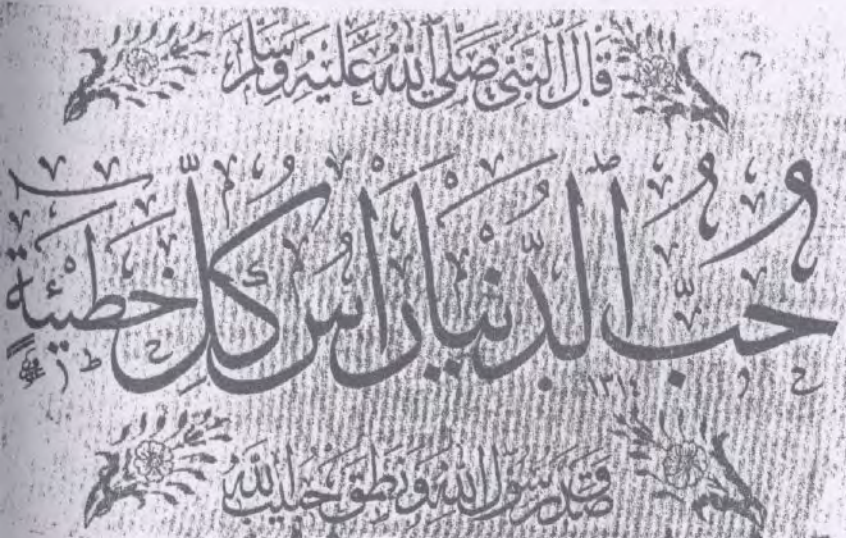 قَالَ النَّبِيُّ صَلَّى اللهُ عَلَيْهِ وَسَلَّمَ
حُبُّ الدُّنْيَا رَأْسُ كُلِّ خَطِيْئَةٍ
١٣١٤
صَدَقَ رَسُولُ اللهِ وَنَطَقَ حَبِيبُ اللهِ